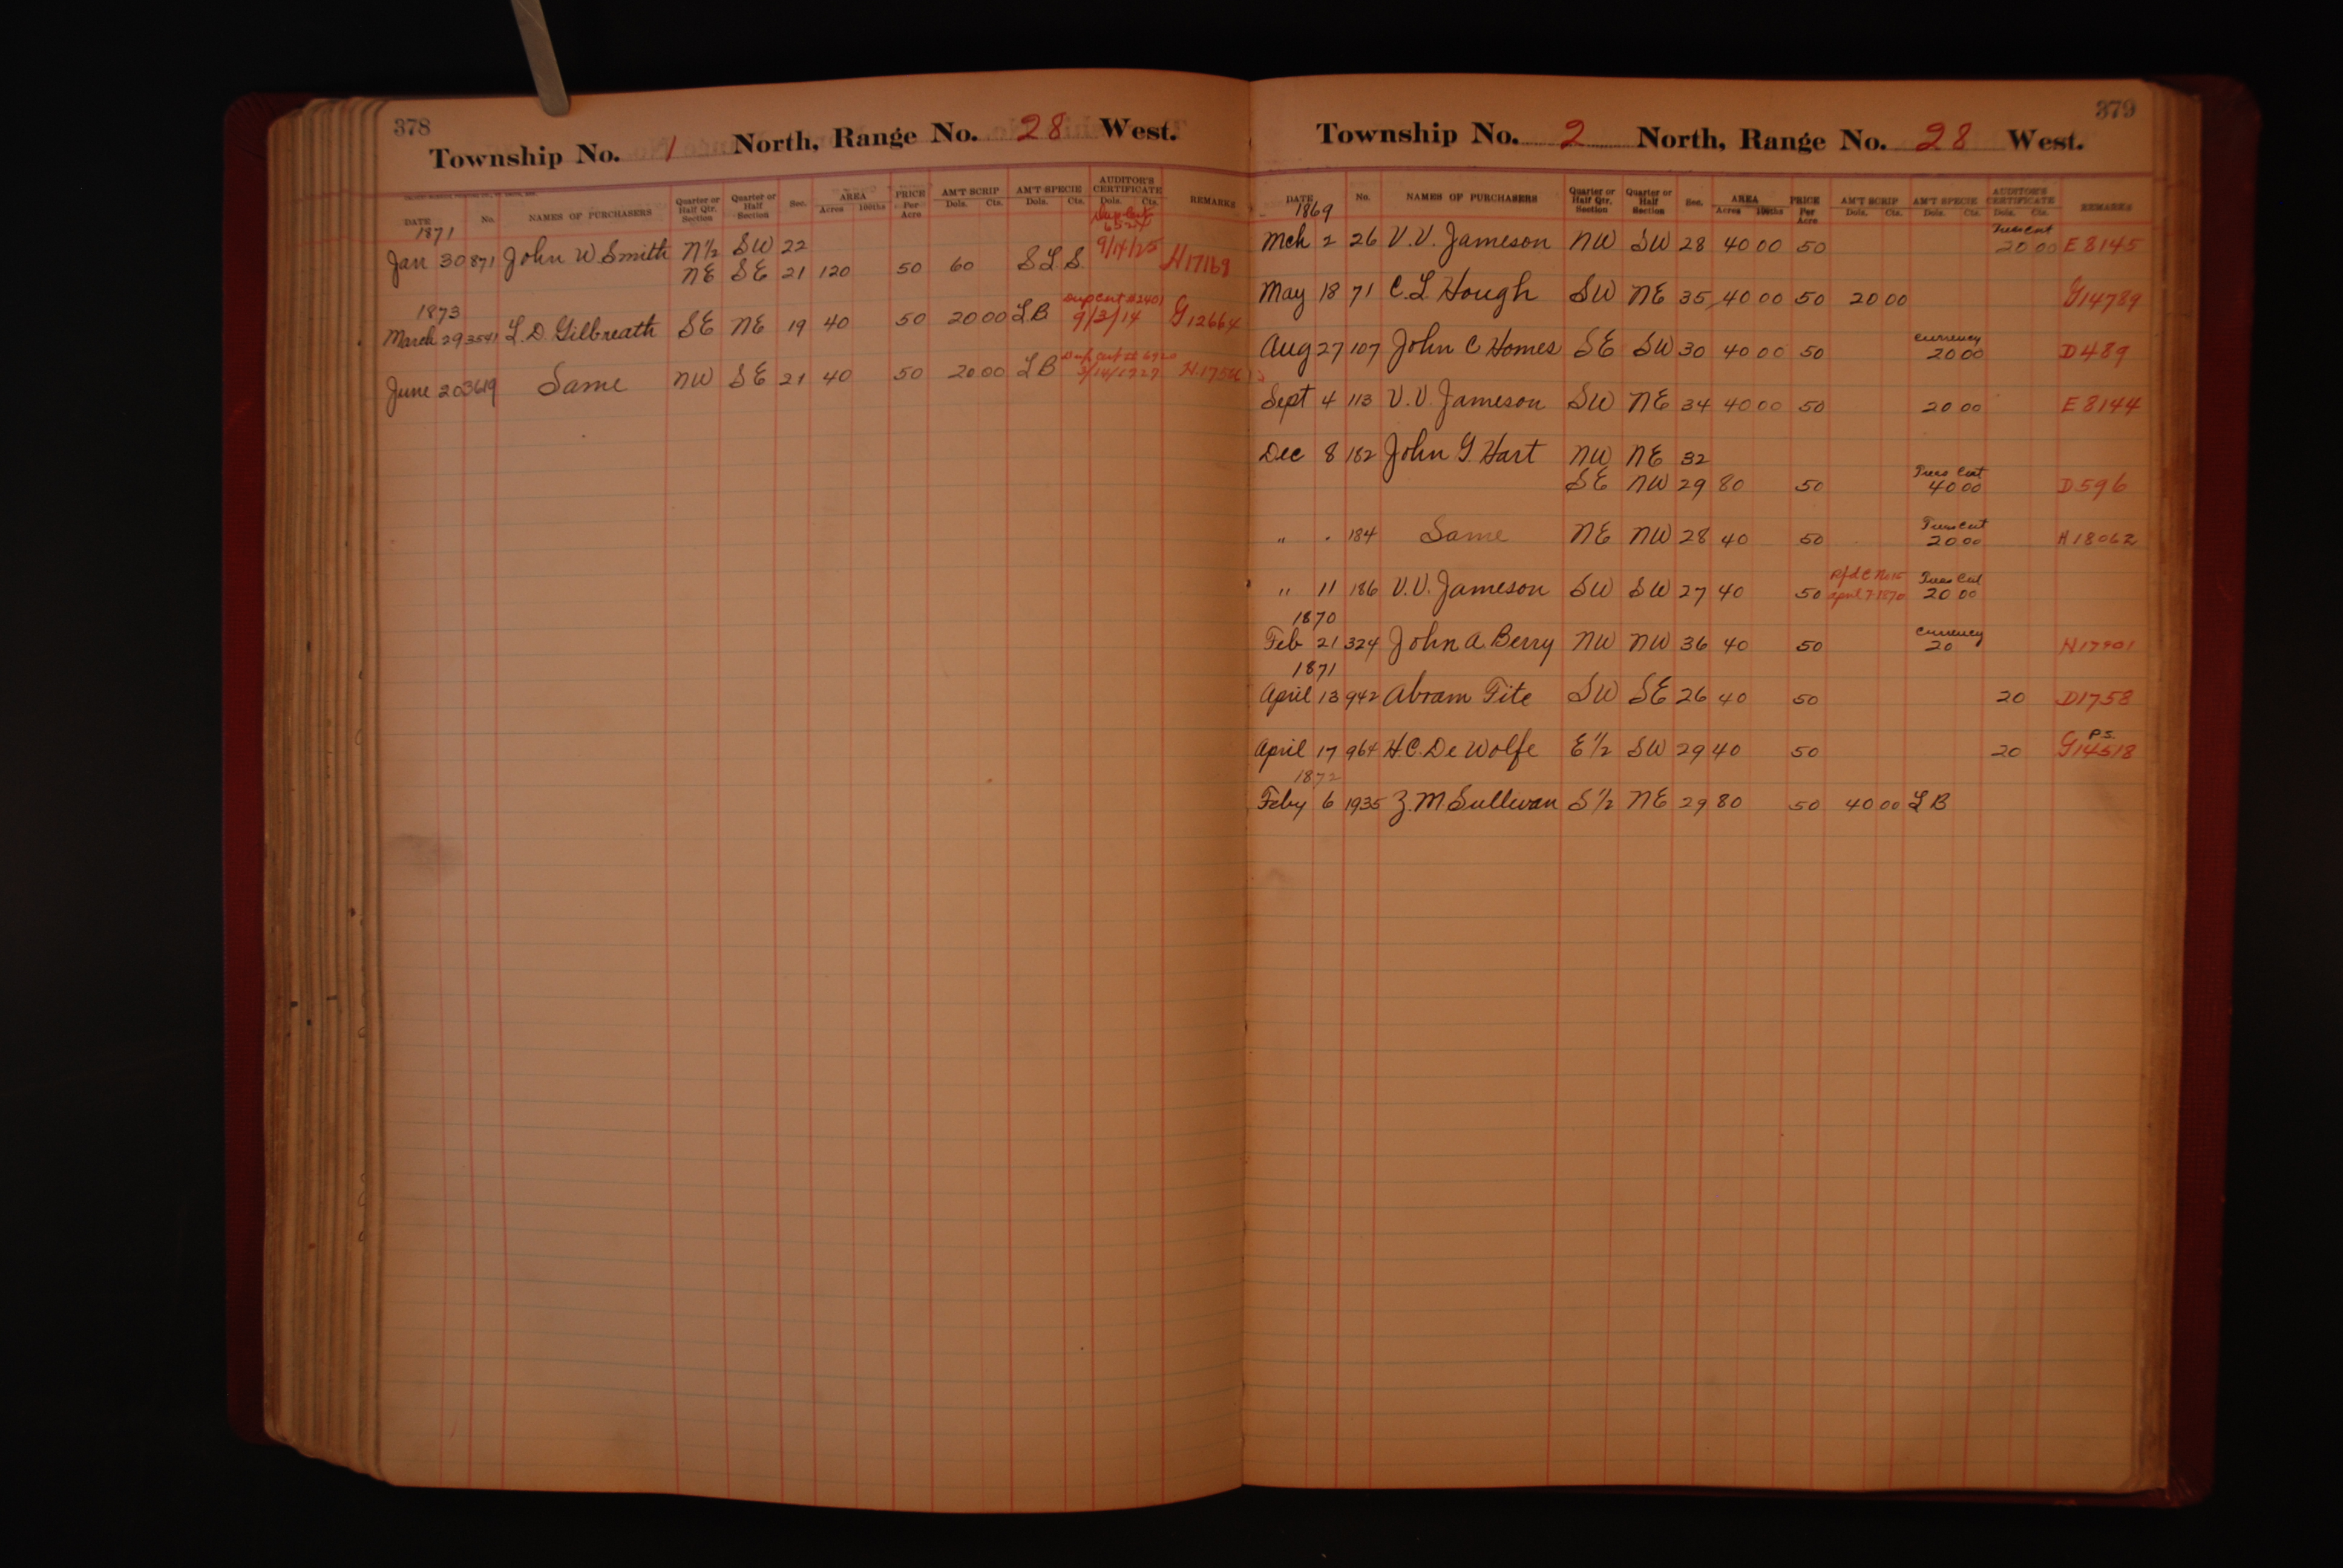 378
Township No. 1 North, Range No. 28 West.
DATE No. NAMES OF PURCHASERS Quarter or Half Qtr. Section Quarter or Half Section Sec. AREA Acres 100ths PRICE Per Acre AM'T SCRIP Dols. Cts. AM'T SPECIE Dols. Cts. AUDITOR'S CERTIFICATE Dols. Cts. REMARKS
1871
Jan 30 871 John W. Smith N½ SW 22 9/14/25
NE SE 21 120 50 60 S L S H17169
1873 Dup Cert #2401
March 29 3541 L. D. Gilbreath SE NE 19 40 50 20 00 L B 9/3/14 G12664
June 20 3619 Same NW SE 21 40 50 20 00 L B
379
Township No. 2 North, Range No. 28 West.
DATE No. NAMES OF PURCHASERS Quarter or Half Qtr. Section Quarter or Half Section Sec. AREA Acres 100ths PRICE Per Acre AM'T SCRIP Dols. Cts. AM'T SPECIE Dols. Cts. AUDITOR'S CERTIFICATE Dols. Cts. REMARKS
1869 Treas Cert
Mch 2 26 V. V. Jameson NW SW 28 40 00 50 20 00 E 8145
May 18 71 C. L. Hough SW NE 35 40 00 50 20 00 G14789
currency
Aug 27 107 John C Homes SE SW 30 40 00 50 20 00 D 489
Sept 4 113 V. V. Jameson SW NE 34 40 00 50 20 00 E 8144
Dec 8 182 John G. Hart NW NE 32
Treas Cert
SE NW 29 80 50 40 00 D 596
Treas Cert
" " 184 Same NE NW 28 40 50 20 00 H 18062
Rfd C No 15 Treas Cert
" 11 186 V. V. Jameson SW SW 27 40 50 april 7 1870 20 00
1870 currency
Feb 21 324 John A. Berry NW NW 36 40 50 20 H17901
1871
April 13 942 Abram Fite SW SE 26 40 50 20 D1758
P.S.
April 17 964 H. C. De Wolfe E ½ SW 29 40 50 20 G14518
1872
Feby 6 1935 Z. M Sullivan S ½ NE 29 80 50 40 00 L B